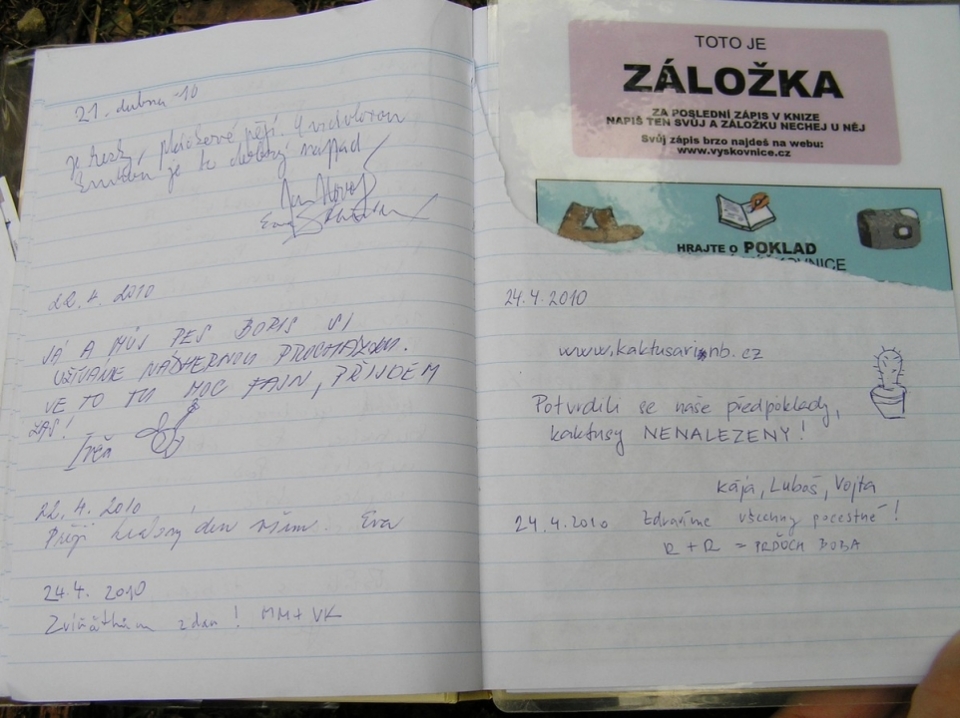 21. dubna -10
je hezky, ptáčkové pějí.
je to dobrý nápad
22.4. 2010
JÁ A MŮJ PES BORIS SI
UŽÍVÁME NÁDHERNOU PROCHÁZKU.
JE TO TU MOC FAJN, PŘIJDEM
ZAS!
22.4. 2010
Přeji krásný den všem. Eva
24.4. 2010
Zvířátkům zdar! MM+VK
TOTO JE
ZÁLOŽKA
ZA POSLEDNÍ ZÁPIS V KNIZE
NAPIŠ TEN SVŮJ A ZÁLOŽKU NECHEJ U NĚJ
Svůj zápis brzo najdeš na webu:
www.vyskovnice.cz
HRAJTE O POKLAD
24.4.2010
www.kaktusarinb.cz
Potvrdili se naše předpoklady,
kaktusy NENALEZENY!
Kája, Luboš, Vojta
24.4.2010 Zdravíme všechny pocestné!
R + R = PRĎOCH BOBA